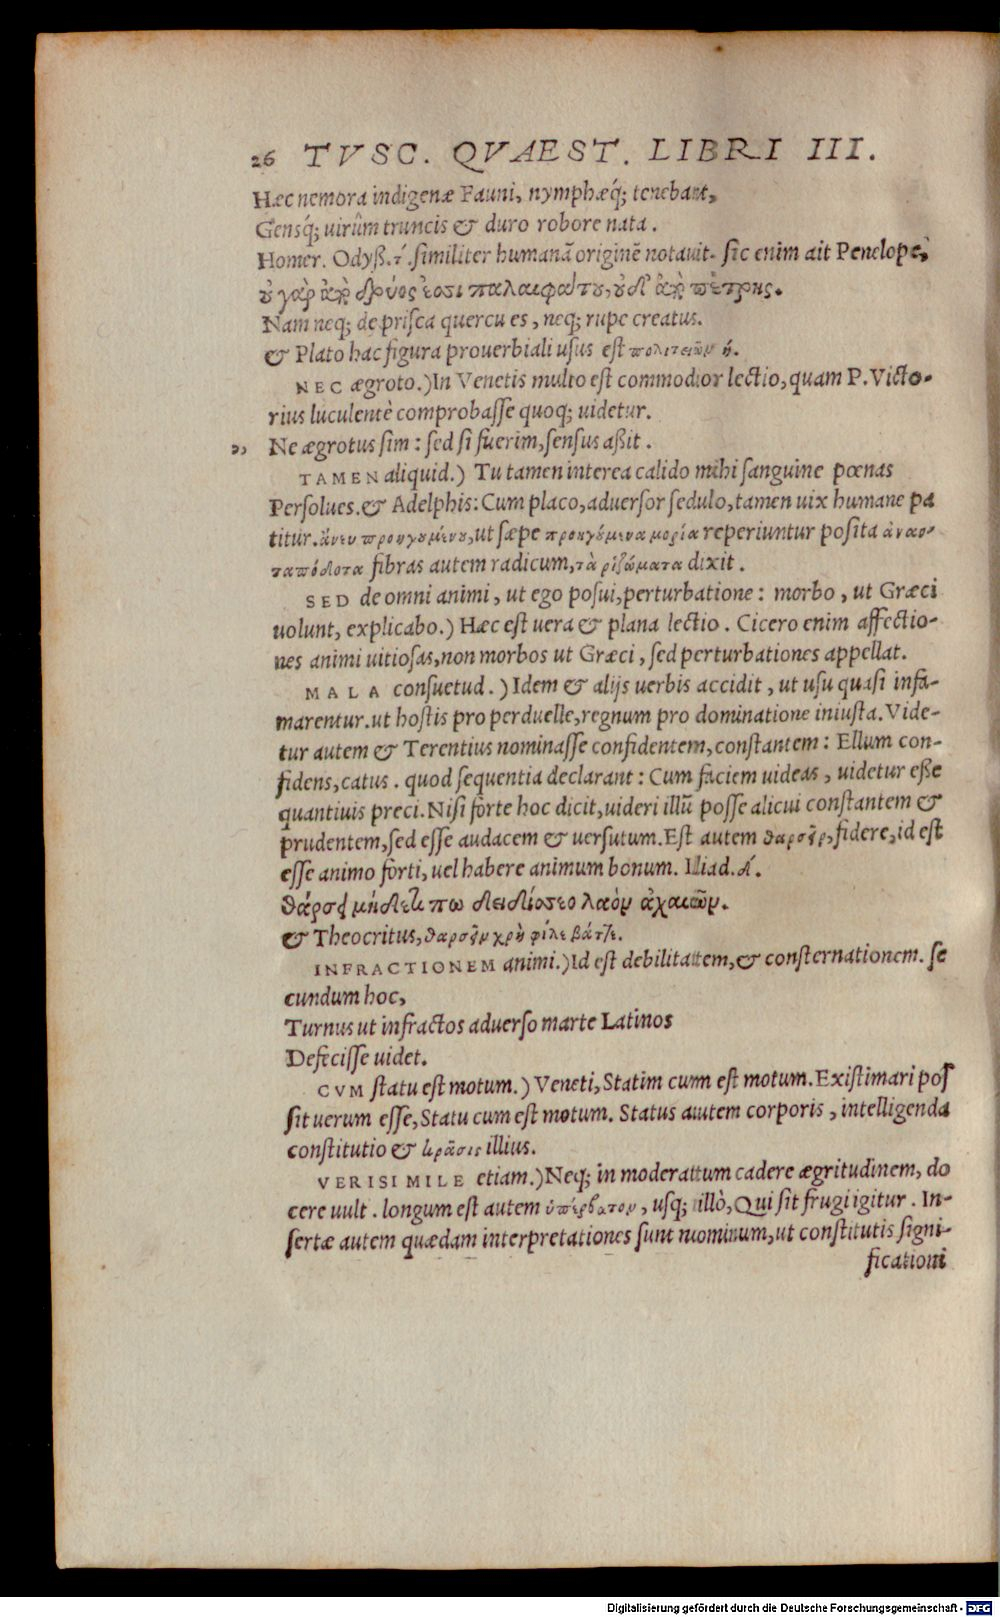 26 TVSC. QVAEST. LIBRI III.
Hæc nemora indigenæ Fauni, nymphæq́; tenebant,
Gensq́; uirûm truncis & duro robore nata.
Homer. Odyß. τ́. similiter humanã originẽ notauit. sic enim ait Penelope,
ὀυ γὰρ ἀπὸ δρυός ἐσσι παλαιφάτου, ὀυδ' ἀπὸ πέτρης.
Nam neq; de prisca quercu es, neq; rupe creatus.
& Plato hac figura prouerbiali usus est πολιτειῶν ή.
NEC ægroto.) In Venetis multo est commodior lectio, quam P. Victo-
rius luculentè comprobasse quoq; uidetur.
„ Ne ægrotus sim: sed si fuerim, sensus aßit.
TAMEN aliquid.) Tu tamen interea calido mihi sanguine pœnas
Persolues. & Adelphis: Cum placo, aduersor sedulo, tamen uix humane pa
titur. ἄνευ προηγουμένου, ut sæpe προηγούμενα μορία reperiuntur posita ἀναν-
ταπόδοτα fibras autem radicum, τὰ ῥιζώματα dixit.
SED de omni animi, ut ego posui, perturbatione: morbo, ut Græci
uolunt, explicabo.) Hæc est uera & plana lectio. Cicero enim affectio-
nes animi uitiosas, non morbos ut Græci, sed perturbationes appellat.
MALA consuetud.) Idem & alijs uerbis accidit, ut usu quasi infa-
marentur. ut hostis pro perduelle, regnum pro dominatione iniusta. Vide-
tur autem & Terentius nominasse confidentem, constantem: Ellum con-
fidens, catus. quod sequentia declarant: Cum faciem uideas, uidetur eße
quantiuis preci. Nisi forte hoc dicit, uideri illũ posse alicui constantem &
prudentem, sed esse audacem & uersutum. Est autem θαρσεῖν, fidere, id est
esse animo forti, uel habere animum bonum. Iliad. δ́.
θάρσει μηδέ τί πω δειδίσσεο λαὸν ἀχαιῶν.
& Theocritus, θαρσεῖν χρὴ φίλε βάττε.
INFRACTIONEM animi.) Id est debilitatem, & consternationem. se
cundum hoc,
Turnus ut infractos aduerso marte Latinos
Defecisse uidet.
CVM statu est motum.) Veneti, Statim cum est motum. Existimari pos
sit uerum esse, Statu cum est motum. Status autem corporis, intelligenda
constitutio & κρᾶσις illius.
VERISIMILE etiam.) Neq; in moderatum cadere ægritudinem, do
cere uult. longum est autem ὑπέρβατον, usq; illò, Qui sit frugi igitur. In-
sertæ autem quædam interpretationes sunt nominum, ut constitutis signi-
ficationi
Digitalisierung gefördert durch die Deutsche Forschungsgemeinschaft - DFG